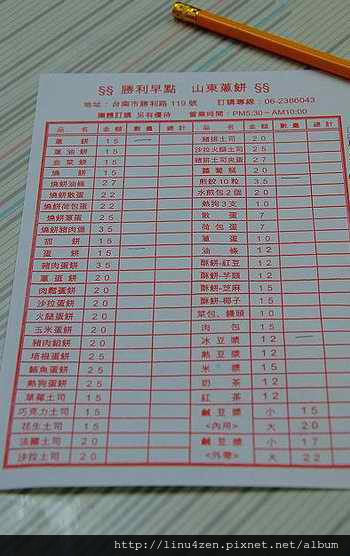 §§ 勝利早點 山東蔥餅 §§
地址：台南市勝利路119號 訂購專線：06-2386043
團體訂購 另有優待 營業時間：PM5:30~AM10:00
品名 金額 數量 總計 品名 金額 數量 總計
蔥餅 15 豬排土司 20
蔥油餅 20 沙拉火腿土司 25
韭菜餅 15 豬排土司夾蛋 27
燒餅 15 蘿蔔糕 20
燒餅油條 27 煎餃10粒 35
燒餅散蛋 22 水煎包2個 20
燒餅荷包蛋 22 熱狗3支 10
燒餅蔥蛋 25 散蛋 7
燒餅豬肉 荷包蛋 7
甜餅 15 蔥蛋 10
蛋餅 15 油條 12
豬肉蛋餅 35 酥餅-紅豆 12
蔥蛋餅 20 酥餅-芋頭 12
肉鬆蛋餅 20 酥餅-芝麻 15
沙拉蛋餅 20 酥餅-椰子 15
火腿蛋餅 20 菜包、饅頭 10
玉米蛋餅 20 肉包 15
豬肉餡餅 20 冰豆漿 12
培根蛋餅 25 熱豆漿 12
鮪魚蛋餅 25 米漿 15
熱狗蛋餅 25 奶茶 12
草莓土司 15 紅茶 12
巧克力土司 15 鹹豆漿 小 15
花生土司 15 <內用> 大 20
法國土司 20 鹹豆漿 小 17
沙拉土司 20 <外帶> 大 22
http://linu4zen.pixnet.net/album